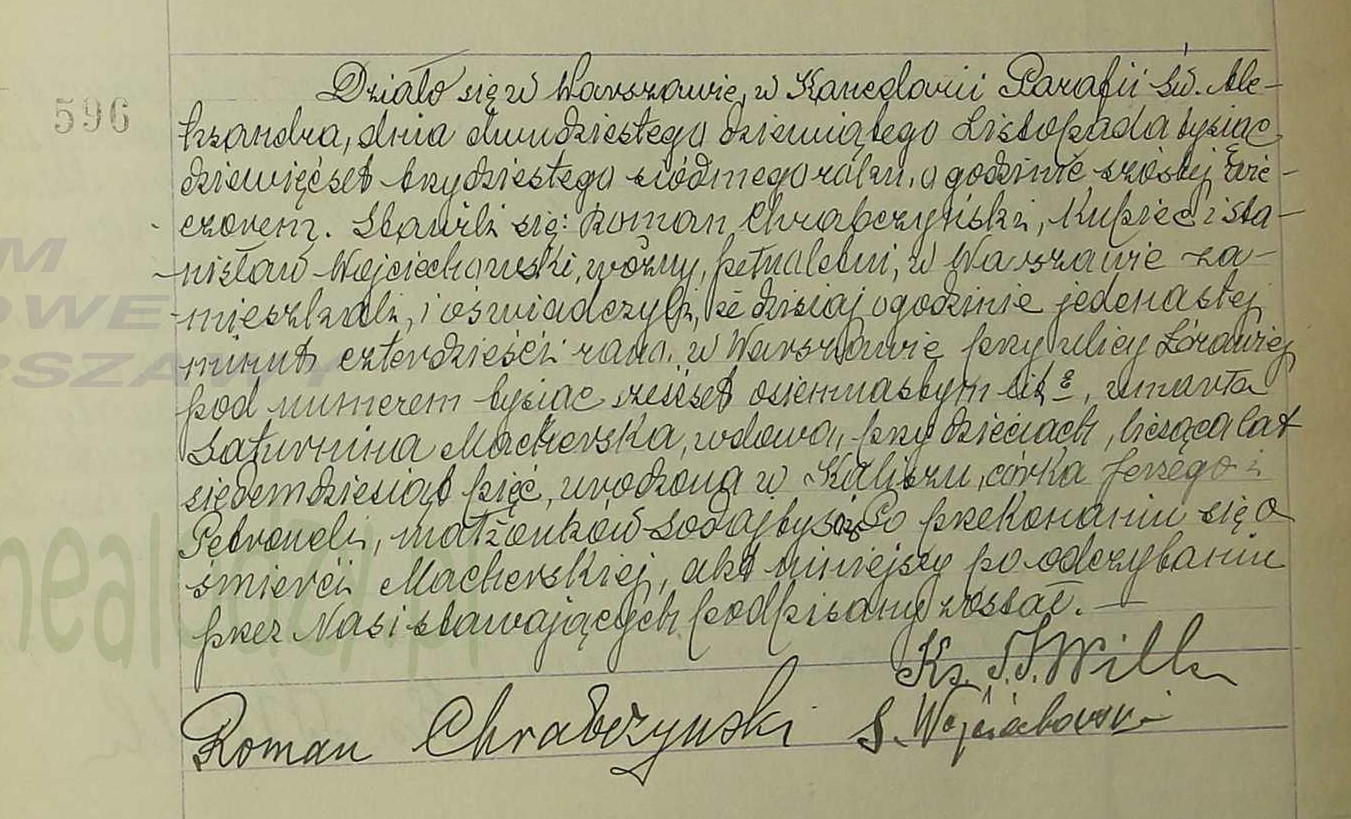 596
Działo się w Warszawie, w Kancelarii Parafii św. Ale-
ksandra, dnia dwudziestego dziewiątego Listopada tysiąc
dziewięćset trzydziestego siódmego roku, o godzinie szóstej wie-
czorem. Stawili się: Roman Chrabczyński, Kupiec i Sta-
nisław Wojciechowski, woźny, pełnoletni, w Warszawie za-
mieszkali, i oświadczyli, że dzisiaj o godzinie jedenastej
minut czterdzieści rano, w Warszawie przy ulicy Żórawiej
pod numerem tysiąc sześćset osiemnastym lit. , umarła
Saturnina Macherska, wdowa, przy dzieciach, licząca lat
siedemdziesiąt pięć, urodzona w Kaliszu, córka Jerzego i
Petroneli, małżonków Po przekonaniu się o
śmierci Macherskiej, akt niniejszy po odczytaniu
przez Nas i stawających podpisany został. —
Ks. Wilk
Roman Chrabczynski S. Wojciechowski
M
OWE
RSZAWY
nealodzy.pl